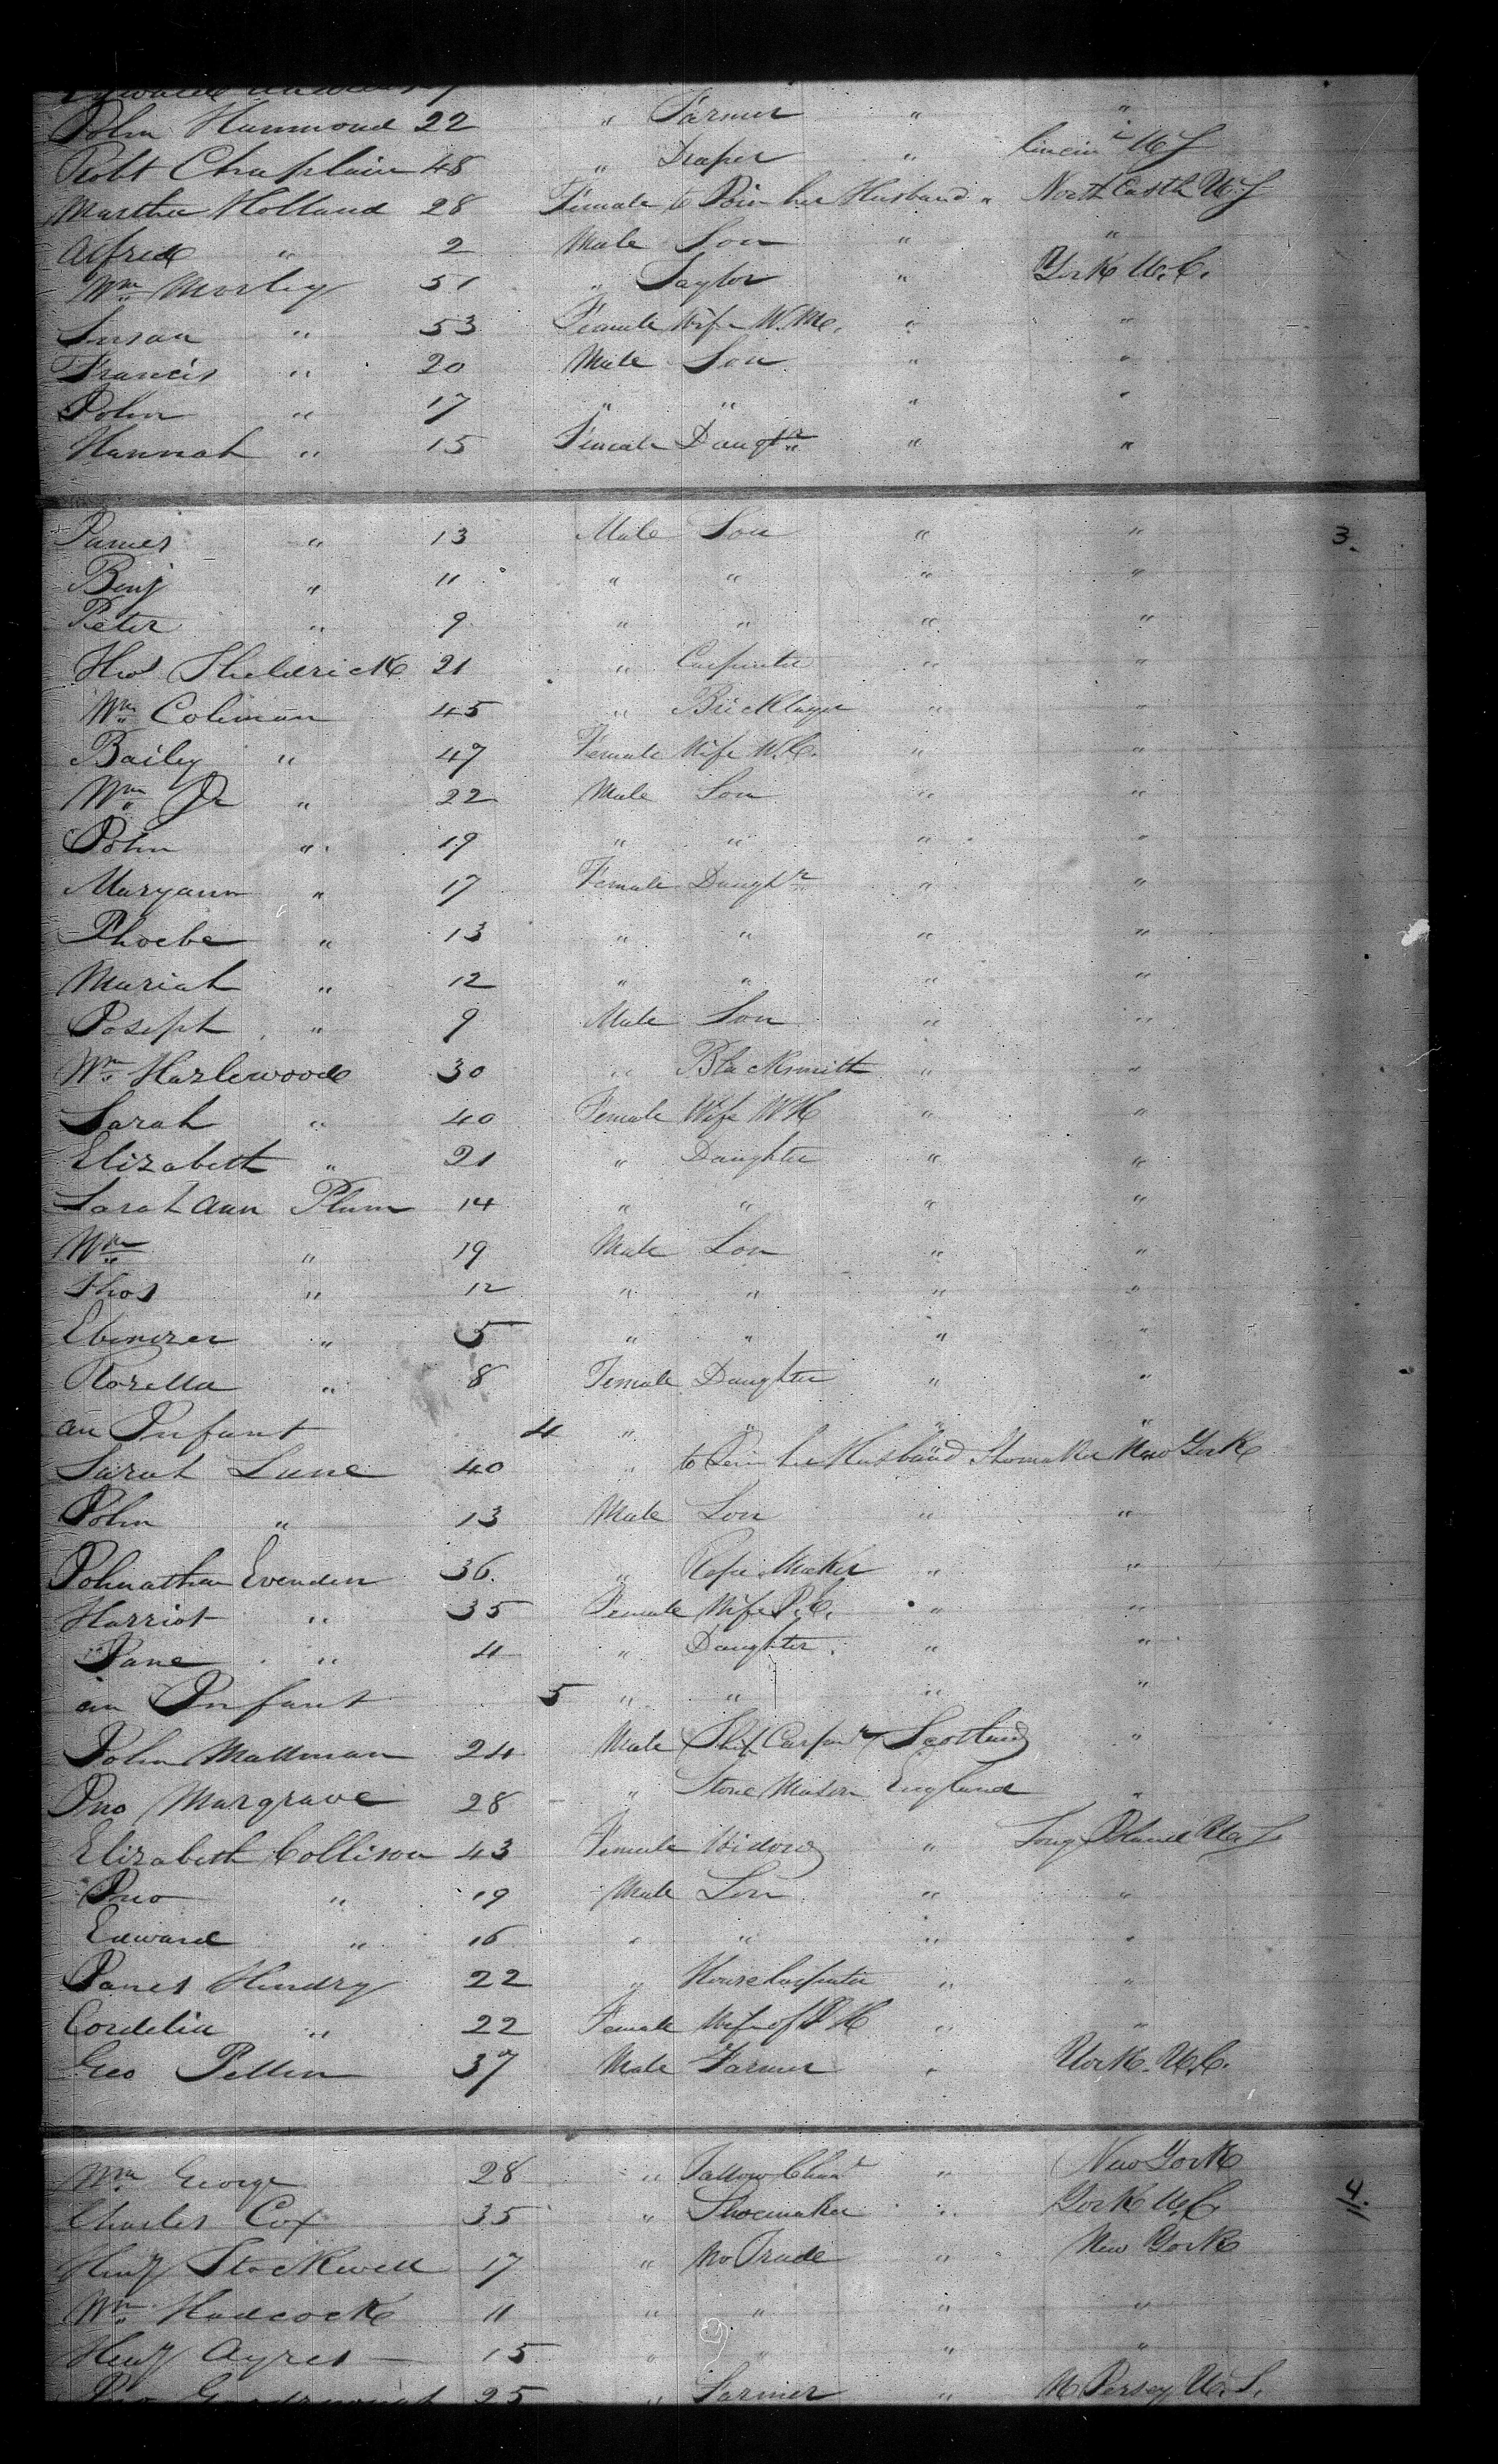 John Hammond 22 " Farmer " "
Robt Chaplain 48 " Draper " Cincini U S
Martha Holland 28 Female to Join her Husband " North Castle U.S
Alfred " 2 Male Son " "
Wm Morley 51 " Taylor " York U.C.
Susan " 53 Female Wife W.M. " "
Francis " 20 Male Son " "
John " 17 " " " "
Hannah " 15 Female Daughr " "
James " 13 Male Son " " 3.
Benj " 11 " " " "
Peter " 9 " " " "
Thos Sheldrick 21 " Carpenter " "
Wm Coliman 45 " Bricklayer " "
Bailey " 47 Female Wife W.C. " "
Wm Jr " 22 Male Son " "
John " 19 " " " "
Maryann " 17 Female Daughr " "
Phoebe " 13 " " " "
Mariah " 12 " " " "
Joseph " 9 Male Son " "
Wm Hazlewood 30 " Blacksmith " "
Sarah " 40 Female Wife W H " "
Elizabeth " 21 " Daughter " "
Sarah ann Plum 14 " " " "
Wm " 19 Male Son " "
Thos " 12 " " " "
Ebenezer " 5 " " " "
Rozella " 8 Female Daughter " "
an Infant 4 " " " "
Sarah Lane 40 " to Join her Husband Shomaker New York
John " 13 Male Son " "
Johnathan Evenden 36 " Rope Maker " "
Harriot " 35 Female Wife J.E. " "
Jane " 4 " Daughter " "
an Infant 5 " " " "
John Mallman 24 Male Ship Carpenr Scotland "
Jno Margrave 28 " Stone Mason England "
Elizabeth Collison 43 Female Widow " Long Island U S
Jno " 19 Male Son " "
Edward " 16 " " " "
James Hendry 22 " House Carpenter " "
Cordelia " 22 Female Wife of J H " "
Geo Pellen 37 Male Farmer " York U.C.
Wm George 28 " Tallow Chanr " New York
Charles Cox 35 " Shoemaker " York U C 4.
Heny Stockwell 17 " No Trade " New York
Wm Hadcock 11 " " " "
Heny Ayres 15 " " " "
Jno 25 " Farmer " N Jersey U.S.